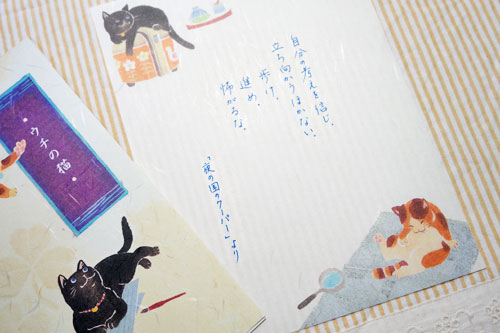 自分の考えを信じ、
立ち向かうほかない。
歩け、
進め、
怖がるな。
「夜の国のクーパー」より
・ウチの猫・